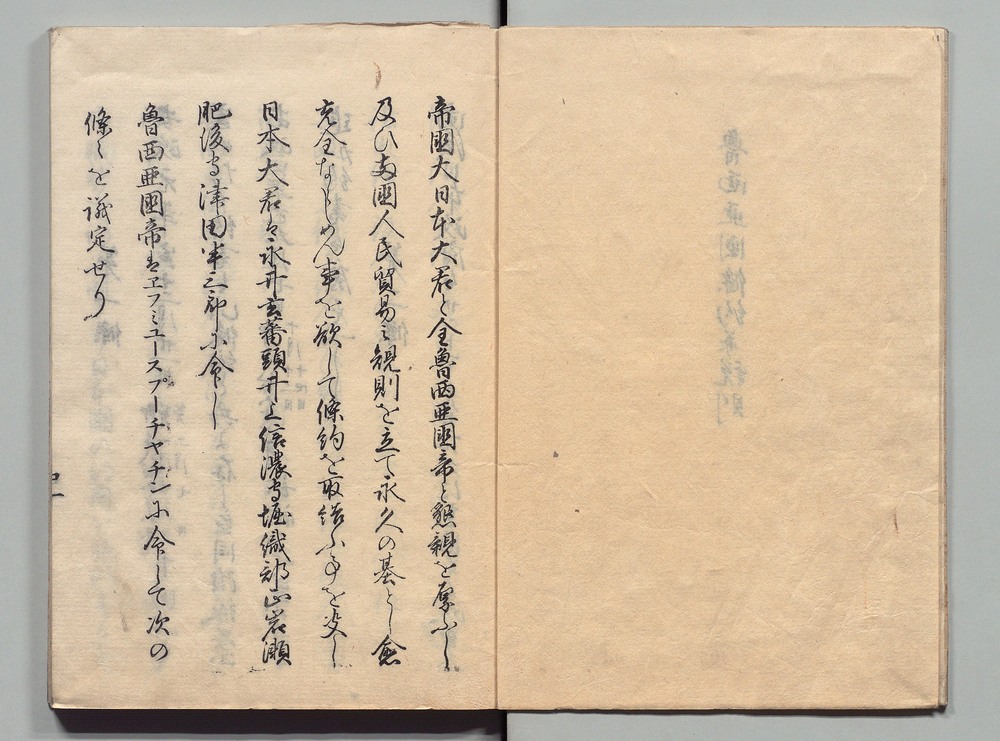 帝國大日本大君と全魯西亜國帝と懇親を厚ふし
及ひ両國人民貿易之規則を立て永久の基とし愈
充全ならしめん事を欲して條約を取結ふ事を決し
日本大君は永井玄蕃頭井上信濃守堀織部正岩瀬
肥後守津田半三郎に命し
魯西亜國帝はエフミユースプーチヤチンに命して次の
條々を議定せり